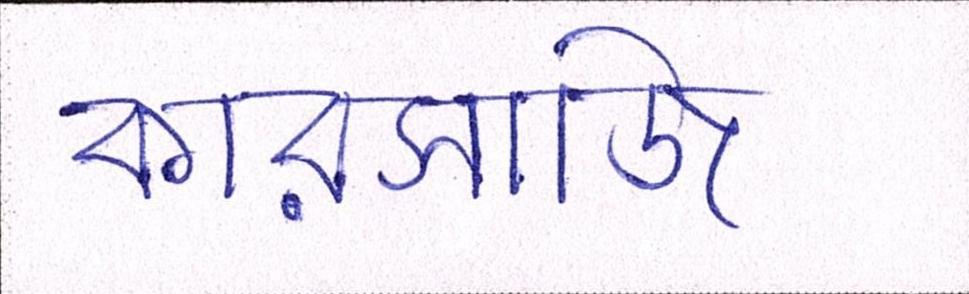 কারসাজি